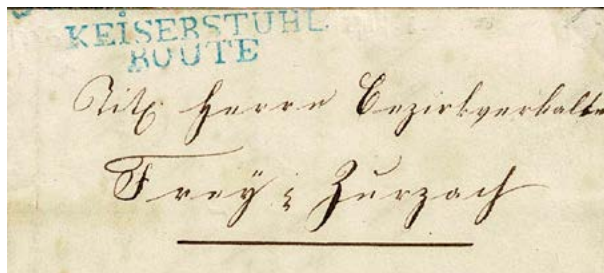 KEISERSTUHL
ROUTE
Tit. Herrn Bezirkverwalter
Frey in Zurzach